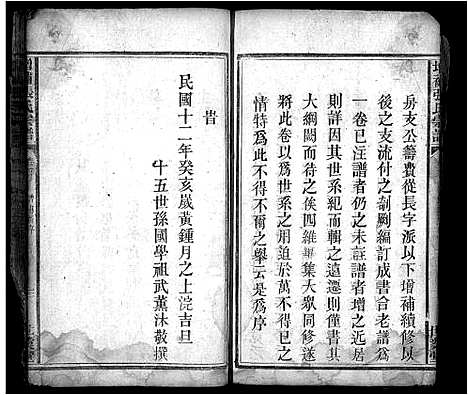 房支公籌費從長字派以下增補續修以
後之支流付之剞劂編訂成書合老譜
一卷已注譜者仍之未註譜者增之近
則詳因其世系紀而輯之遠遷則存其
大綱闕而待之俟四維畢集大眾同修遂
將此卷以為世系之用蓋迫於萬不得已之
情特為此不得不爾之舉云是為序
旹
民國十二年癸亥嵗黃鍾月之上浣吉旦
十五世孫國學祖武薰沐敬撰